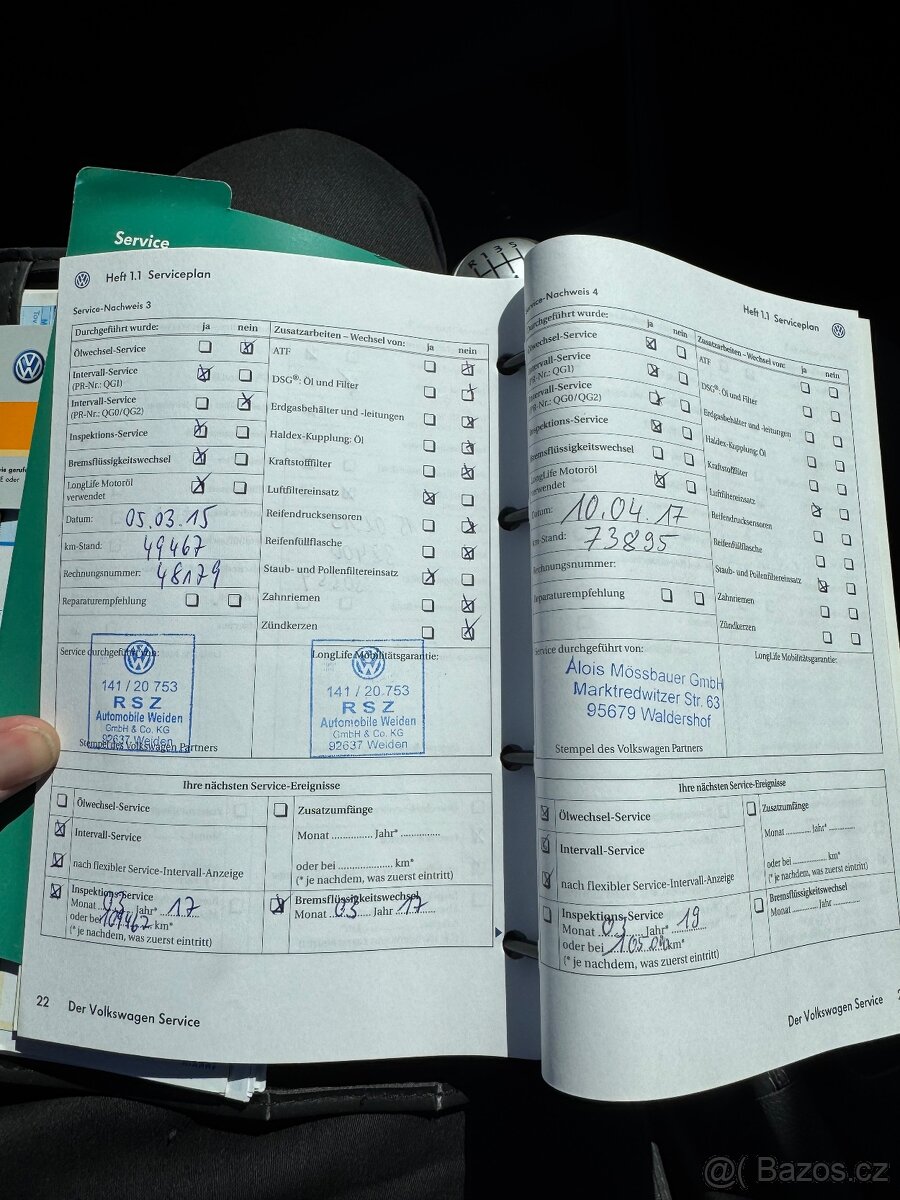 Service
Heft 1.1 Serviceplan
Service-Nachweis 3
Durchgeführt wurde: ja nein
Ölwechsel-Service
Intervall-Service
(PR-Nr.: QG1)
Intervall-Service
(PR-Nr.: QG0/QG2)
Inspektions-Service
Bremsflüssigkeitswechsel
LongLife Motoröl
verwendet
Datum: 05.03.15
km-Stand: 49467
Rechnungsnummer: 48179
Reparaturempfehlung
Zusatzarbeiten – Wechsel von: ja nein
ATF
DSG®: Öl und Filter
Erdgasbehälter und -leitungen
Haldex-Kupplung: Öl
Kraftstofffilter
Luftfiltereinsatz
Reifendrucksensoren
Reifenfüllflasche
Staub- und Pollenfiltereinsatz
Zahnriemen
Zündkerzen
Service durchgeführt von:
141 / 20 753
RSZ
Automobile Weiden
GmbH & Co. KG
92637 Weiden
Stempel des Volkswagen Partners
LongLife Mobilitätsgarantie:
141 / 20 753
RSZ
Automobile Weiden
GmbH & Co. KG
92637 Weiden
Ihre nächsten Service-Ereignisse
Ölwechsel-Service
Intervall-Service
nach flexibler Service-Intervall-Anzeige
Inspektions-Service
Monat 03 Jahr* 17
oder bei 109467 km*
(* je nachdem, was zuerst eintritt)
Zusatzumfänge
Monat ............ Jahr* ............
oder bei ................ km*
(* je nachdem, was zuerst eintritt)
Bremsflüssigkeitswechsel
Monat 03 Jahr 17
22 Der Volkswagen Service
Heft 1.1 Serviceplan
Service-Nachweis 4
Durchgeführt wurde: ja nein
Ölwechsel-Service
Intervall-Service
(PR-Nr.: QG1)
Intervall-Service
(PR-Nr.: QG0/QG2)
Inspektions-Service
Bremsflüssigkeitswechsel
LongLife Motoröl
verwendet
Datum: 10.04.17
km-Stand: 73895
Rechnungsnummer:
Reparaturempfehlung
Zusatzarbeiten – Wechsel von: ja nein
ATF
DSG®: Öl und Filter
Erdgasbehälter und -leitungen
Haldex-Kupplung: Öl
Kraftstofffilter
Luftfiltereinsatz
Reifendrucksensoren
Reifenfüllflasche
Staub- und Pollenfiltereinsatz
Zahnriemen
Zündkerzen
Service durchgeführt von:
Alois Mössbauer GmbH
Marktredwitzer Str. 63
95679 Waldershof
Stempel des Volkswagen Partners
LongLife Mobilitätsgarantie:
Ihre nächsten Service-Ereignisse
Ölwechsel-Service
Intervall-Service
nach flexibler Service-Intervall-Anzeige
Inspektions-Service
Monat 03 Jahr* 19
oder bei km*
(* je nachdem, was zuerst eintritt)
Zusatzumfänge
Monat ............ Jahr* ............
oder bei ................ km*
(* je nachdem, was zuerst eintritt)
Bremsflüssigkeitswechsel
Monat ............ Jahr ............
Der Volkswagen Service
@( Bazos.cz